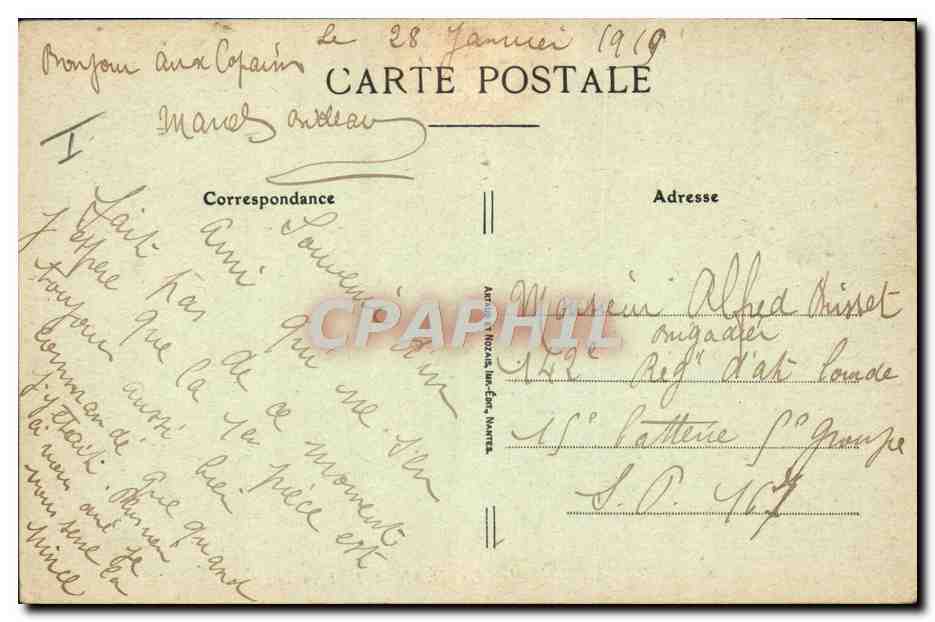 Le 28 Janvier 1919
Bonjour aux Copains
CARTE POSTALE
Marcel
I
Correspondance
Adresse
Souvenir d'un
ami qui ne s'en
fait pas de ce moment
J'espère que la 1re pièce est
toujours aussi bien
commandé que quand
j'y était.
ami je
vous serre la
pince
ARTAUD ET NOZAIS, IMP.-ÉDIT., NANTES
Monsieur Alfred
Brigadier
142e Régt d'art lourde
15e Batterie 5e Groupe
S. P. 167
CPAPHIL